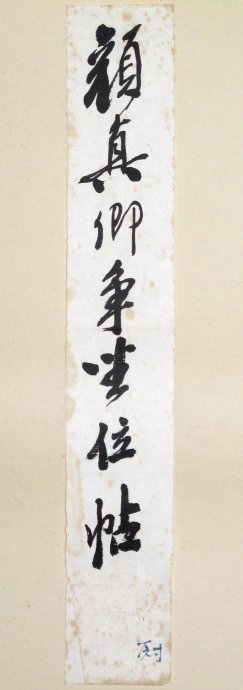 顔真卿争坐位帖